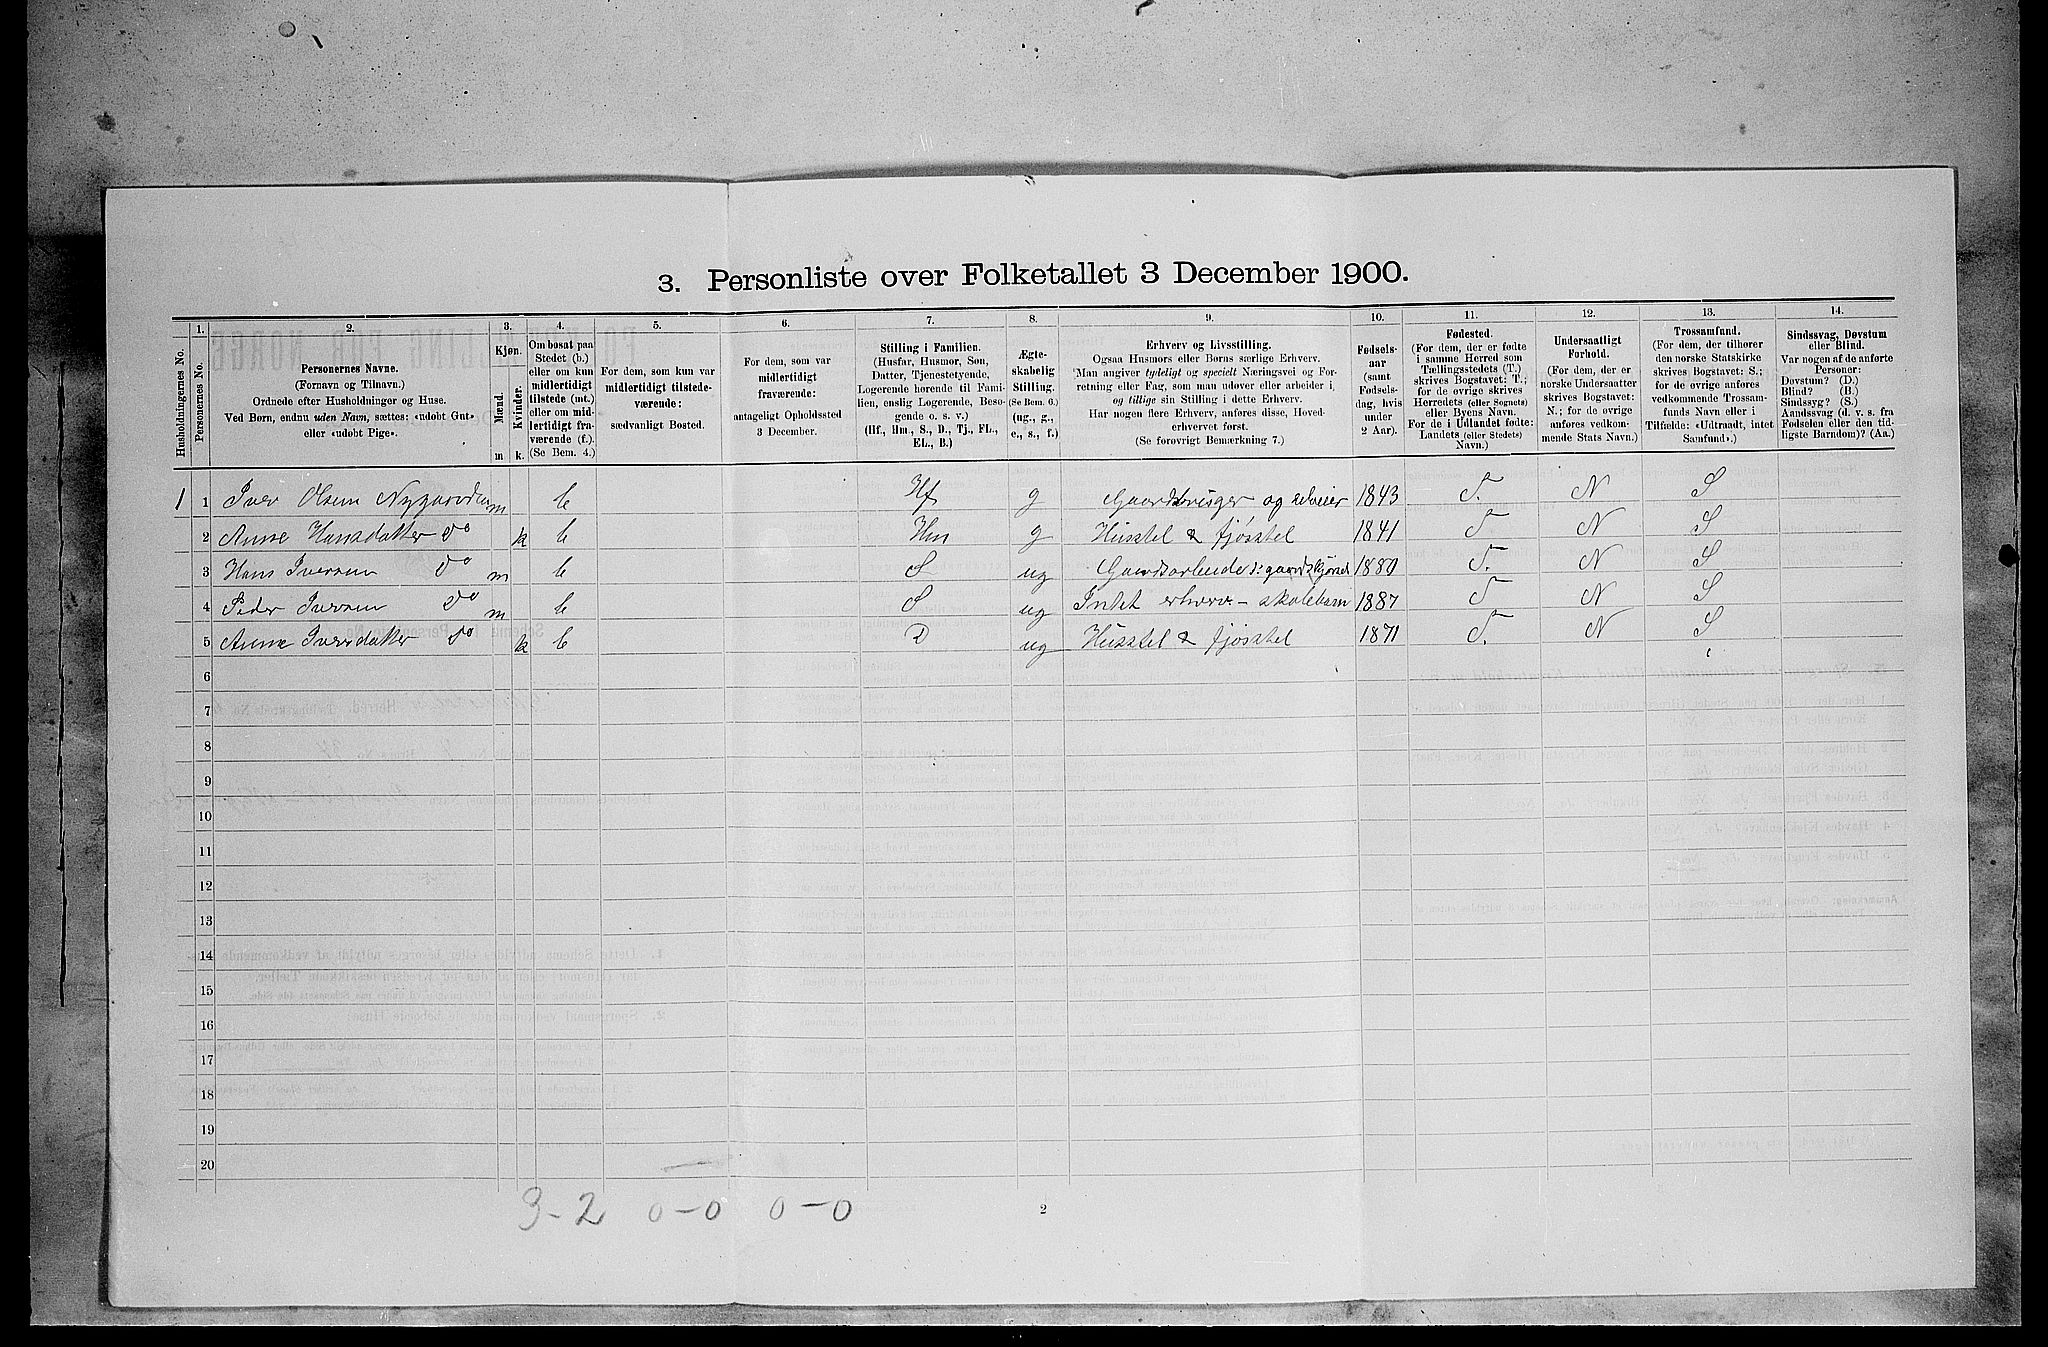 3. Personliste over Folketallet 3 December 1900.
Husholdningernes No.
1.
Personernes No.
2.
Personernes Navne.
(Fornavn og Tilnavn.)
Ordnede efter Husholdninger og Huse.
Ved Børn, endnu uden Navn, sættes: «udøbt Gut»
eller «udøbt Pige».
3.
Kjøn.
Mænd.
Kvinder.
m k.
4.
Om bosat paa
Stedet (b.)
eller om kun
midlertidigt
tilstede (mt.)
eller om mid-
lertidigt fra-
værende (f.).
(Se Bem. 4.)
5.
For dem, som kun var
midlertidigt tilstede-
værende:
sædvanligt Bosted.
6.
For dem, som var
midlertidigt
fraværende:
antageligt Opholdssted
3 December.
7.
Stilling i Familien.
(Husfar, Husmor, Søn,
Datter, Tjenestetyende,
Logerende hørende til Fami-
lien, enslig Logerende, Besø-
gende o. s. v.)
(Hf., Hm., S., D., Tj., FL.,
EL., B.)
8.
Ægte-
skabelig
Stilling.
(Se Bem. 6.)
(ug., g.,
e., s., f.)
9.
Erhverv og Livsstilling.
Ogsaa Husmors eller Børns særlige Erhverv.
Man angiver tydeligt og specielt Næringsvei og For-
retning eller Fag, som man udøver eller arbeider i,
og tillige sin Stilling i dette Erhverv.
Har nogen flere Erhverv, anføres disse, Hoved-
erhvervet først.
(Se forøvrigt Bemærkning 7.)
10.
Fødsels-
aar
(samt
Fødsels-
dag, hvis
under
2 Aar).
11.
Fødested.
(For dem, der er fødte
i samme Herred som
Tællingsstedets (T.)
skrives Bogstavet: T.;
for de øvrige skrives
Herredets (eller Sognets)
eller Byens Navn.
For de i Udlandet fødte:
Landets (eller Stedets)
Navn.)
12.
Undersaatligt
Forhold.
(For dem, der er
norske Undersaatter
skrives Bogstavet:
N.; for de øvrige
anføres vedkom-
mende Stats Navn.)
13.
Trossamfund.
(For dem, der tilhører
den norske Statskirke
skrives Bogstavet: S.;
for de øvrige anføres
vedkommende Trossam-
funds Navn eller i
Tilfælde: «Udtraadt, intet
Samfund».)
14.
Sindssvag, Døvstum
eller Blind.
Var nogen af de anførte
Personer:
Døvstum? (D.)
Blind? (B.)
Sindssyg? (S.)
Aandssvag (d. v. s. fra
Fødselen eller den tid-
ligste Barndom)? (Aa.)
1 1 Iver Olsen m b Hf g og 1843 T. N S
2 Anne Hansdatter Do k b Hm g Husstel & fjøsstel 1841 T N S
3 Hans Iversen Do m b S ug T. N S
4 Peder Iversen Do m b S ug Intet erhverv - skolebarn 1887 T N S
5 Anne Iversdatter Do k b D ug Husstel & fjøsstel 1871 T. N S
6
7
8
9
10
11
12
13
14
15
16
17
18
19
20
3-2 0-0 0-0
2